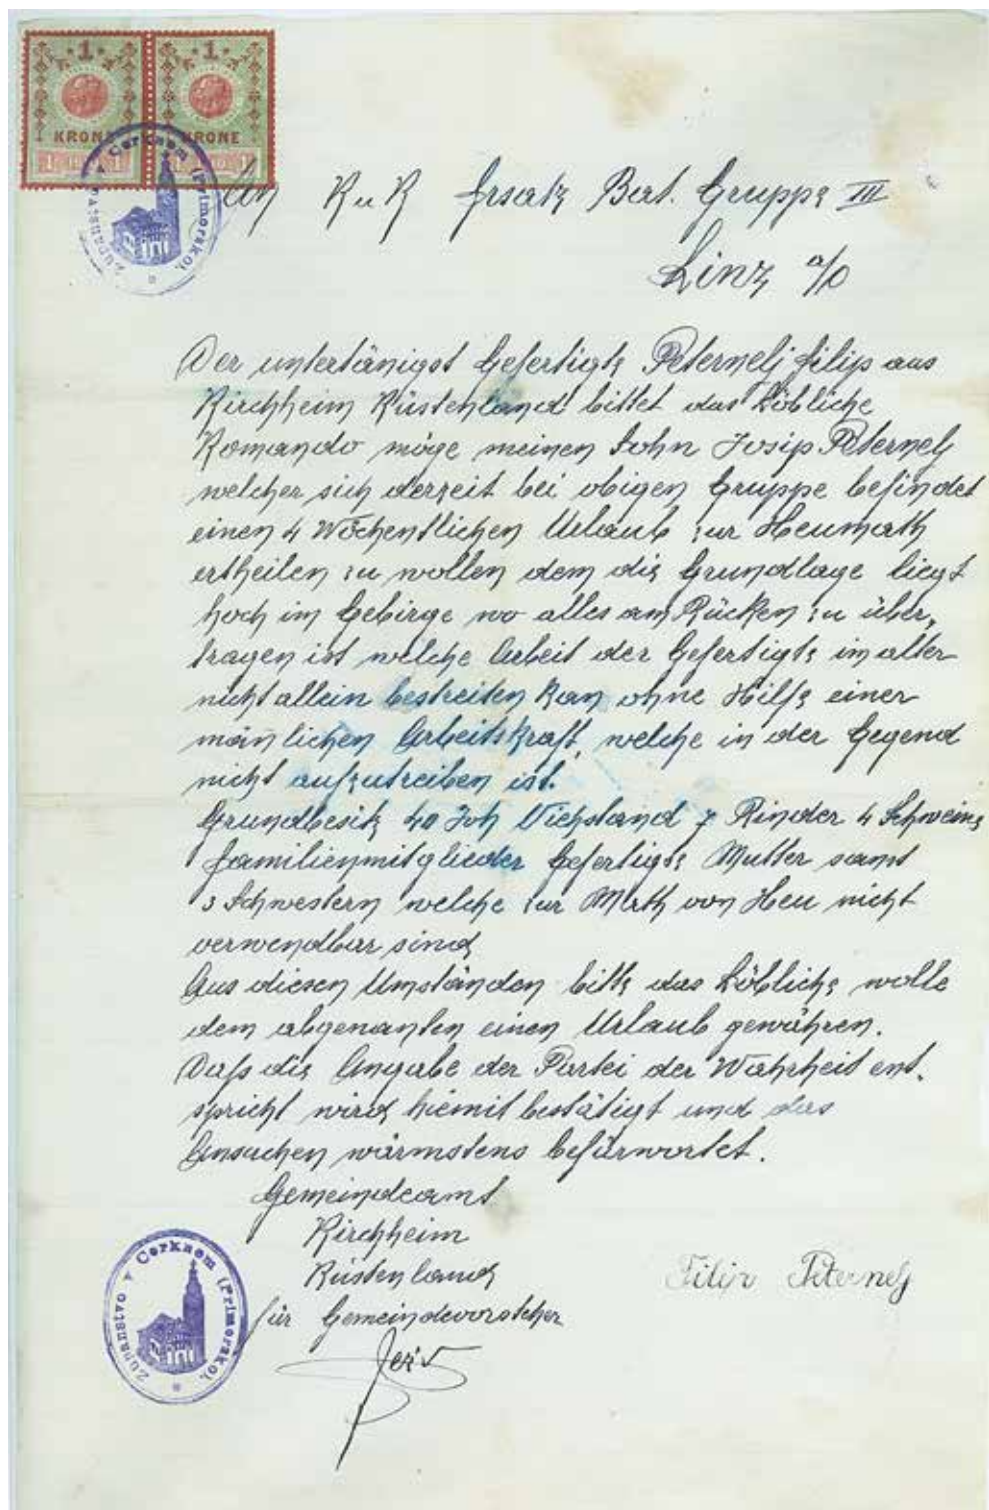 1 1
KRONE KRONE
1 1 1 1
Županstvo v Cerknem (Primorsko).
An K u K Ersatz Bat. Gruppe III
Linz a/D
Der untertänigst Gefertigte Peternelj Filip aus
Kirchheim Küstenland bittet das Löbliche
Komando möge meinen Sohn Josip Peternelj
welcher sich derzeit bei obigen Gruppe befindet
einen 4 Wöchentlichen Urlaub zur Heumath
ertheilen zu wollen dem die Grundlage liegt
hoch im Gebirge wo alles am Rücken zu über,
tragen ist welche Arbeit der Gefertigte im alter
nicht allein bestreiten kan ohne Hilfe einer
mänlichen Arbeitskraft, welche in der Gegend
nicht aufzutreiben ist.
Grundbesitz 40 Joh Viehstand 7 Rinder 4 Schweine
Familienmitglieder Gefertigte Mutter samt
3 Schwestern welche zur Math von Heu nicht
verwendbar sind
Aus diesen Umständen bitte das Löbliche wolle
dem abgenanten einen Urlaub gewähren.
Daß die Angabe der Partei der Wahrheit ent.
spricht wird hiemit bestätigt und das
Ansuchen wärmstens befürwortet.
Gemeindeamt
Kirchheim
Küstenland
für Gemeindevorsteher
Filip Peternelj
Županstvo v Cerknem (Primorsko).